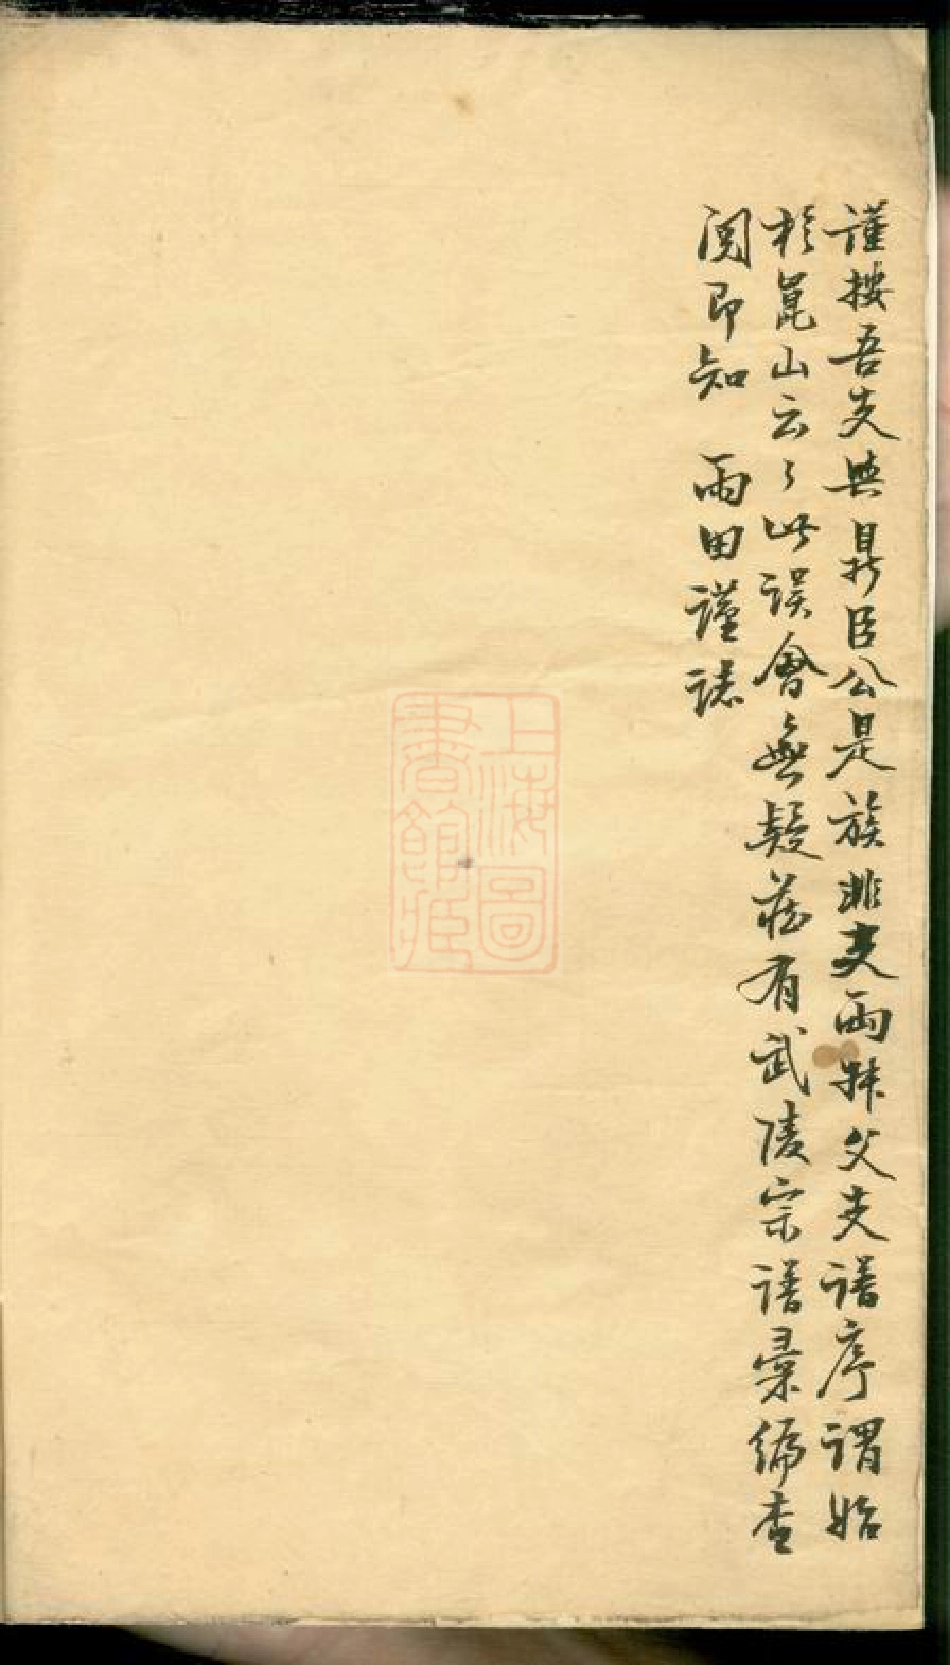 謹按吾支與鼎臣公是族非支雨叔父支譜序謂始
於崑山云々此误會無疑茲有武陵宗譜彙编查
閱即知 雨田謹誌
上海圖
書館藏